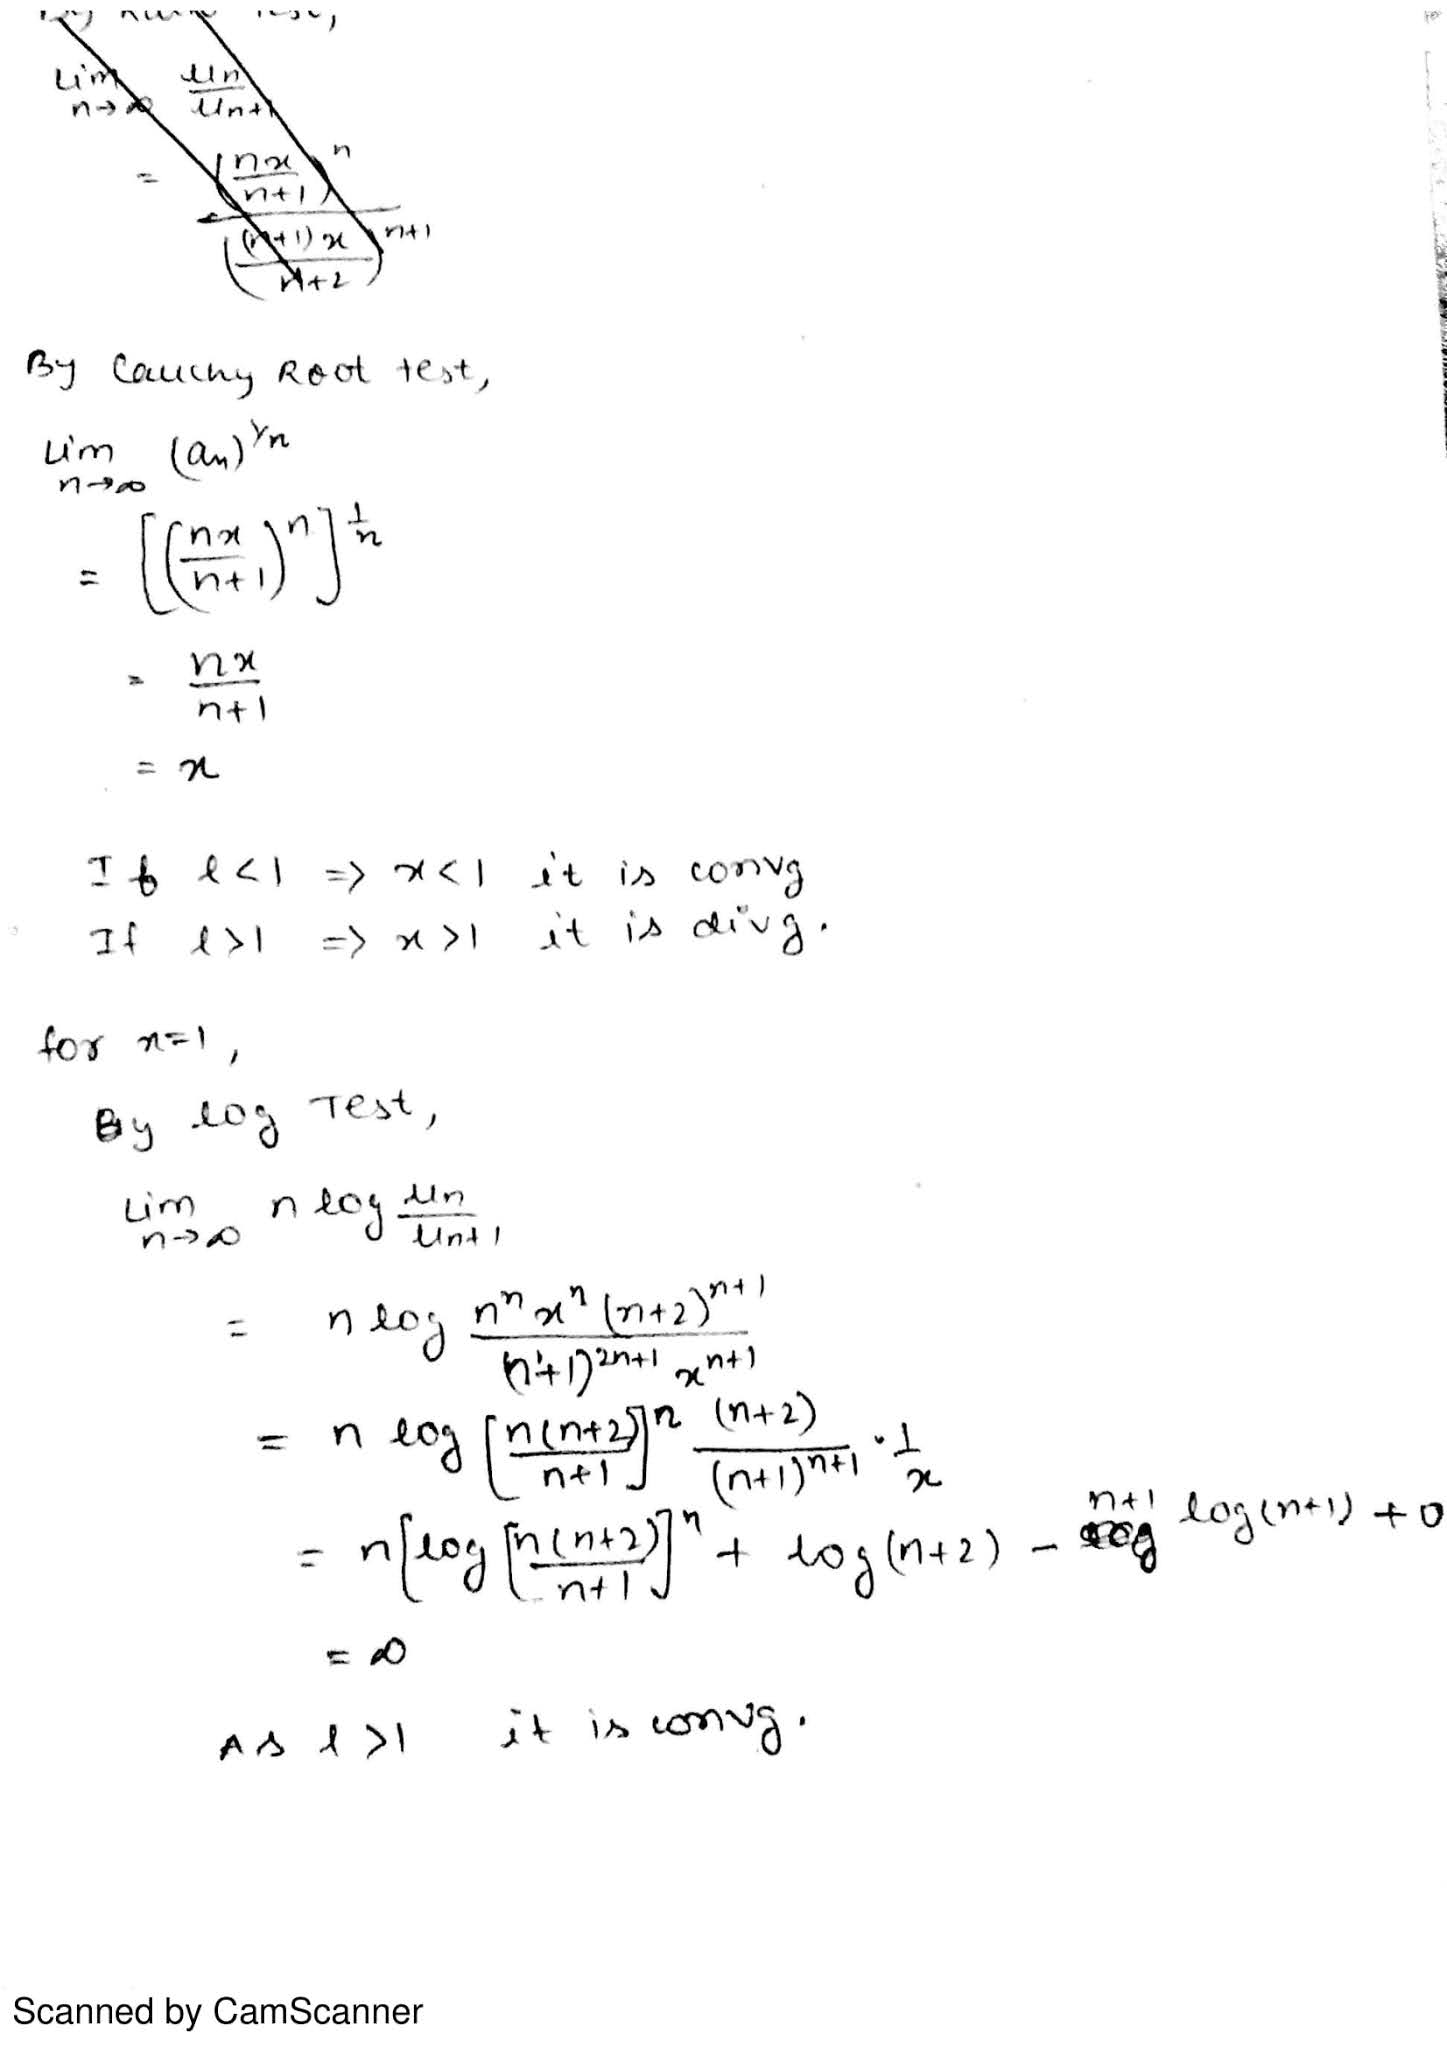 Test,
Lim n→∞ un/un+1
= (nx/n+1)^n / ((n+1)x/n+2)^n+1
By Cauchy Root test,
Lim n→∞ (an)^1/n
= [(nx/n+1)^n]^1/n
= nx/n+1
= x
If l<1 => x<1 it is convg
If l>1 => x>1 it is divg.
for x=1,
By log Test,
Lim n→∞ n log un/un+1
= n log n^n x^n (n+2)^n+1 / (n+1)^2n+1 x^n+1
= n log [n(n+2)/n+1]^n (n+2)/(n+1)^n+1 · 1/x
= n[log [n(n+2)/n+1]^n + log(n+2) - n+1 log(n+1) + 0
= ∞
As l>1 it is convg.
Scanned by CamScanner